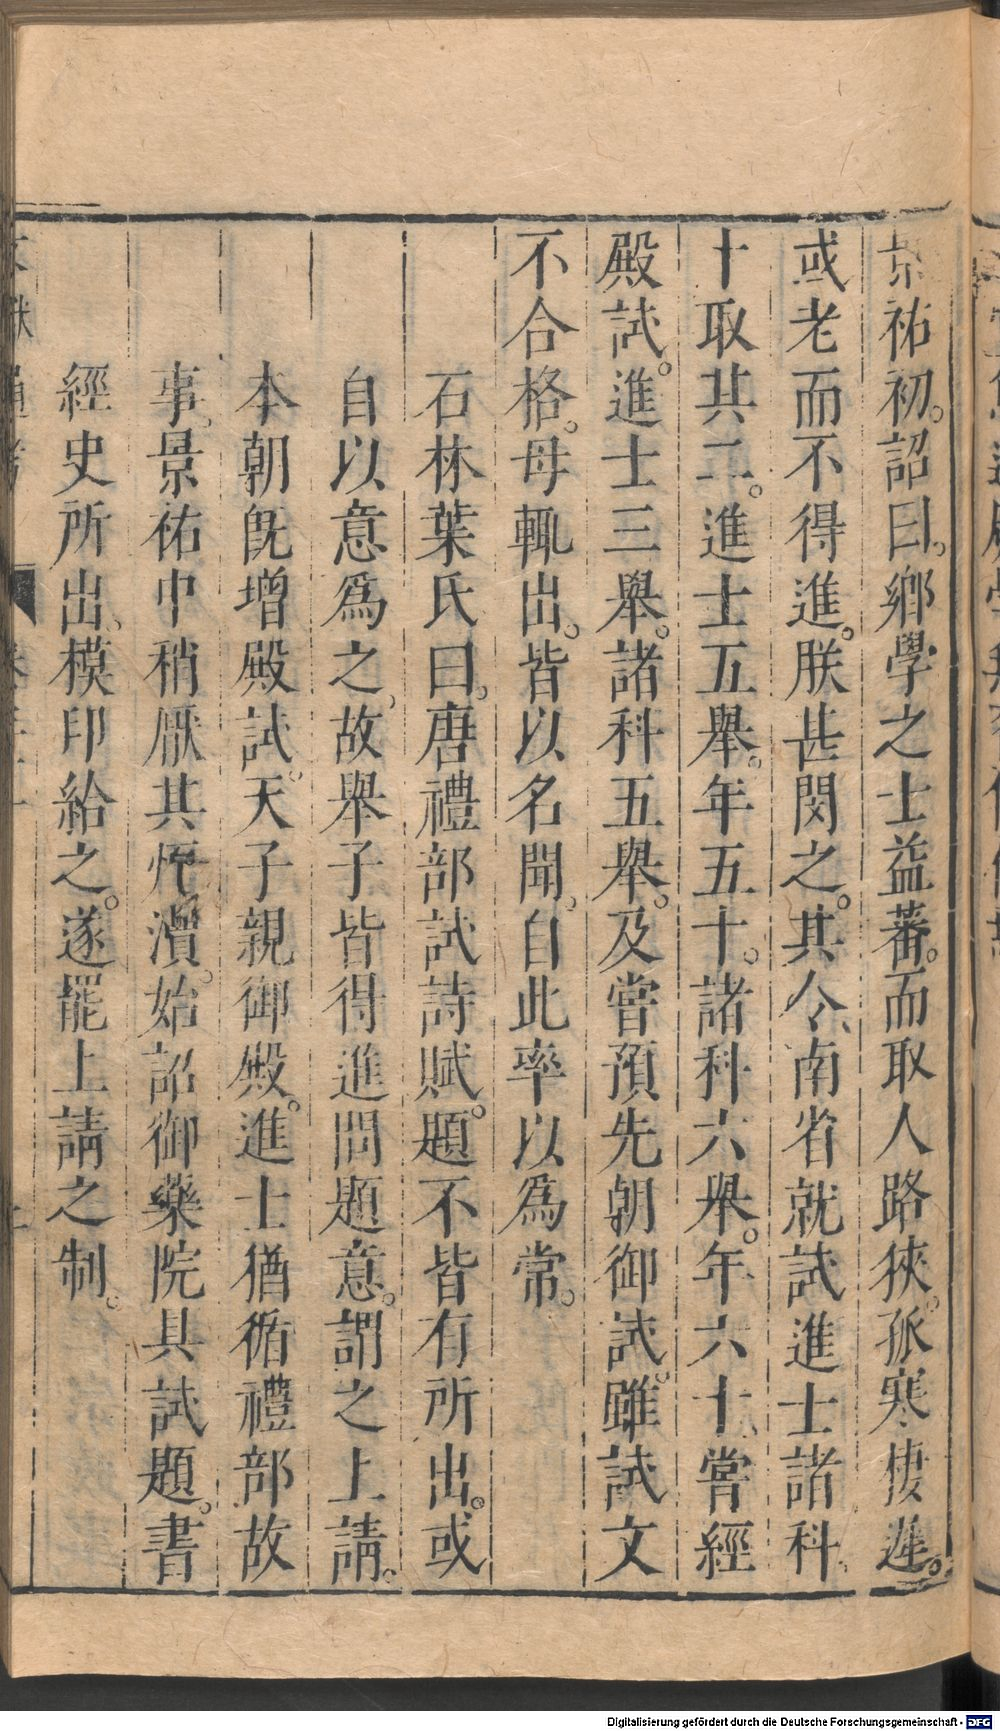 景祐初。詔曰。鄉學之士益蕃。而取人路狹。孤寒棲遲。
或老而不得進。朕甚閔之。其令、南省就試進士諸科、
十取其二。進士五舉。年五十。諸科六舉。年六十、嘗經
殿試。進士三舉。諸科五舉。及嘗預先朝御試。雖試文
不合格。毋輒出。皆以名聞、自此率以爲常。
石林葉氏曰。唐禮部試詩賦。題不皆有所出。或
自以意爲之、故舉子皆得進問題意。謂之上請。
本朝旣增殿試。天子親御殿。進士猶循禮部故
事、景祐中稍厭其煩瀆。始詔御藥院具試題。書
經史所出、模印給之。遂罷上請之制。
文獻通考
Digitalisierung gefördert durch die Deutsche Forschungsgemeinschaft - DFG